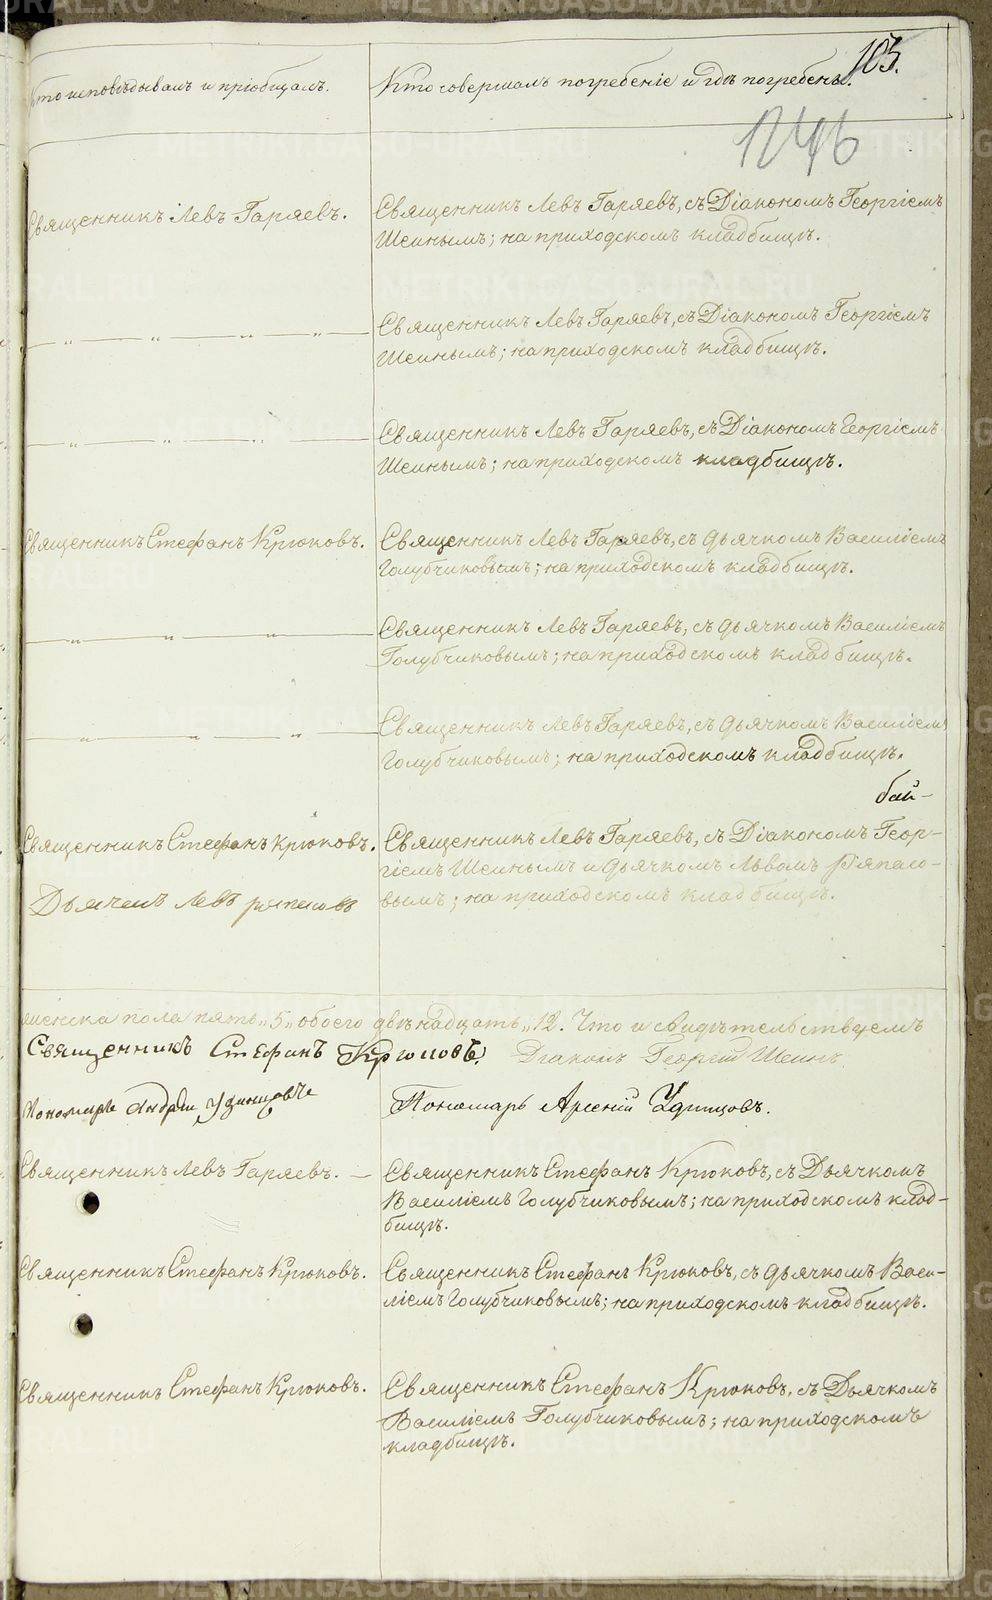 103.
Кто исповѣдывалъ и пріобщалъ. Кто совершалъ погребеніе и гдѣ погребены.
1246
Священникъ Левъ Гаряевъ. Священникъ Левъ Гаряевъ, съ Діакономъ Георгіемъ
Шеинымъ; на приходскомъ кладбищѣ.
— „ — „ — „ — „ — Священникъ Левъ Гаряевъ, съ Діакономъ Георгіемъ
Шеинымъ; на приходскомъ кладбищѣ.
— „ — „ — „ — „ — Священникъ Левъ Гаряевъ, съ Діакономъ Георгіемъ
Шеинымъ; на приходскомъ кладбищѣ.
Священникъ Стефанъ Крюковъ. Священникъ Левъ Гаряевъ, съ дьячкомъ Василіемъ
Голубчиковымъ; на приходскомъ кладбищѣ.
— „ — „ — „ — Священникъ Левъ Гаряевъ, съ дьячкомъ Василіемъ
Голубчиковымъ; на приходскомъ кладбищѣ.
— „ — „ — „ — Священникъ Левъ Гаряевъ, съ дьячкомъ Василіемъ
Голубчиковымъ; на приходскомъ кладбищѣ.
бай-
Священникъ Стефанъ Крюковъ. Священникъ Левъ Гаряевъ, съ Діакономъ Геор-
гіемъ Шеинымъ и дьячкомъ Львомъ Ряпасо-
Дьячекъ Левъ ряпасовъ вымъ; на приходскомъ кладбищѣ.
женска пола пять „5„ обоего двѣнадцать „12. Что и свидѣтельствуемъ
Священникъ Стефанъ Крюковъ. Діаконъ Георгій Шеинъ
Пономарь Андрей Удинцовъ Пономарь Арсеній Удинцовъ.
Священникъ Левъ Гаряевъ. — Священникъ Стефанъ Крюковъ, съ Дьячкомъ
Василіемъ Голубчиковымъ; на приходскомъ клад-
бищѣ.
Священникъ Стефанъ Крюковъ. Священникъ Стефанъ Крюковъ, съ дьячкомъ Васи-
ліемъ Голубчиковымъ; на приходскомъ кладбищѣ.
Священникъ Стефанъ Крюковъ. Священникъ Стефанъ Крюковъ, съ Дьячкомъ
Василіемъ Голубчиковымъ; на приходскомъ
кладбищѣ.
METRIKI.GASO-URAL.RU